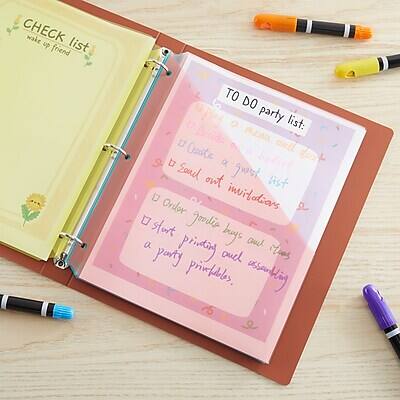 CHECK list
wake up friend
TO DO party list:
a menu and
□ Create a guest list
□ Send out invitations
□ Order goodie bags and items
□ start printing and assembling
a party printables.